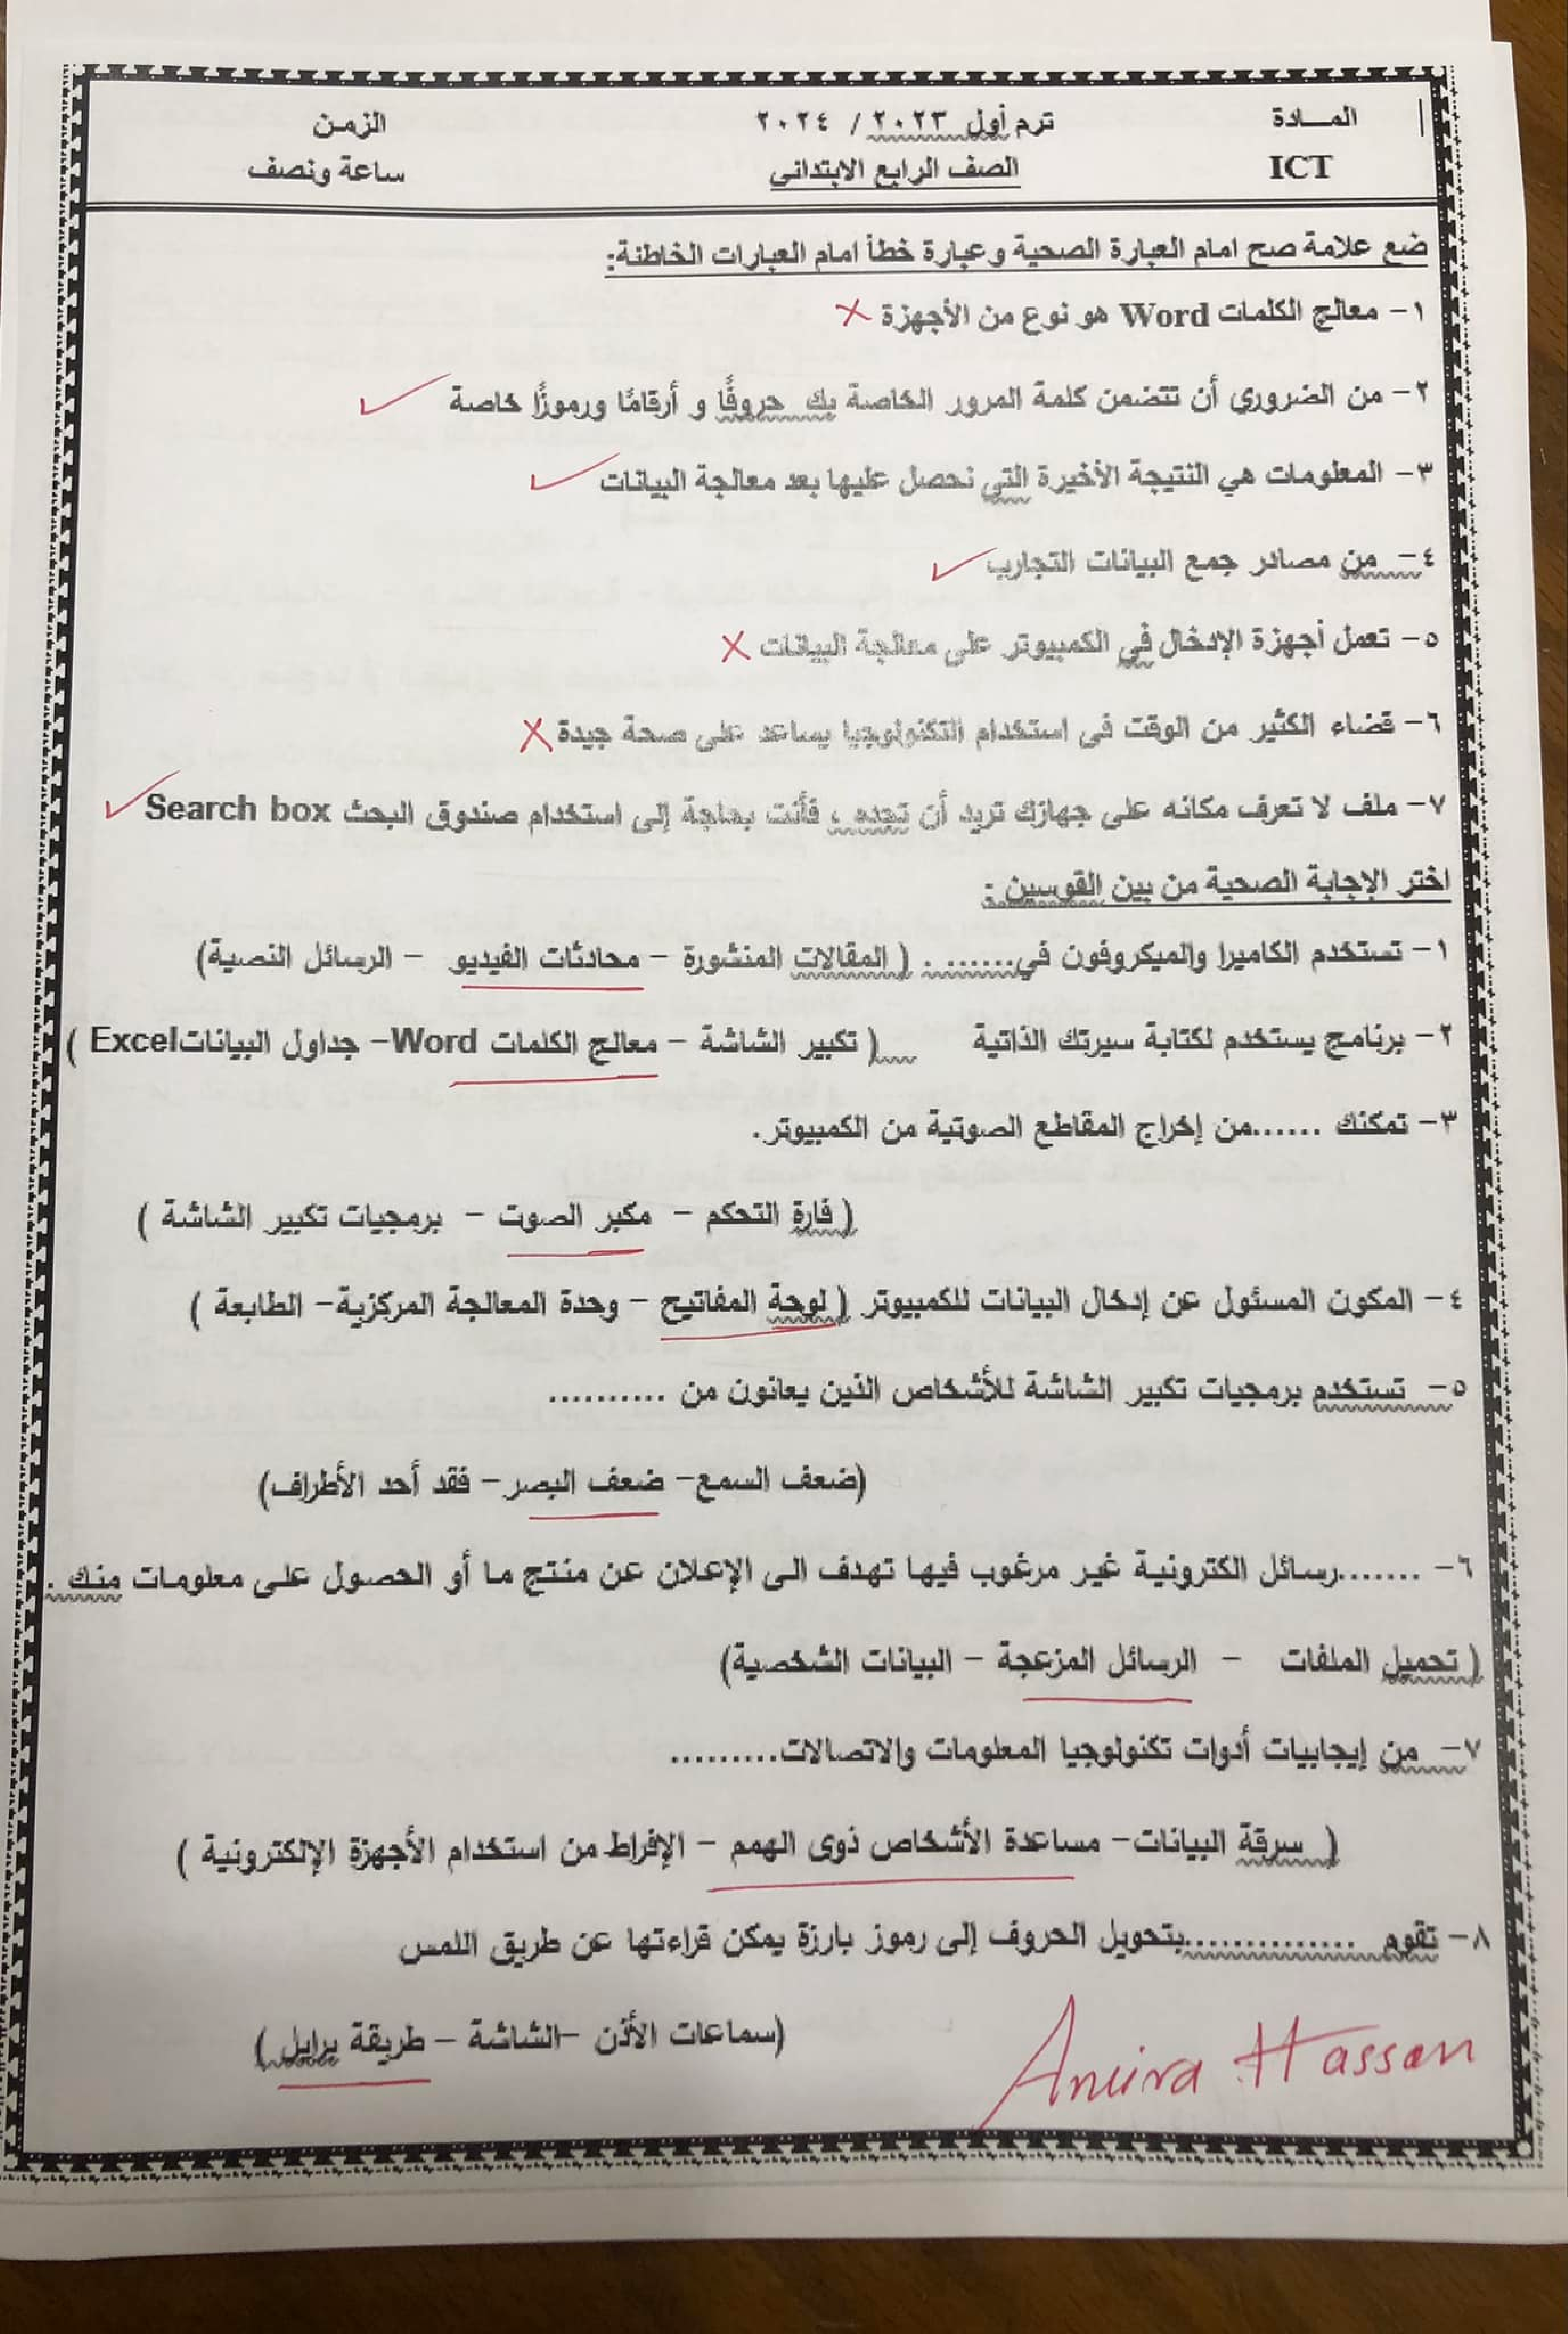 المـــادة ترم أول ٢٠٢٣ / ٢٠٢٤ الزمن
ICT الصف الرابع الابتدائى ساعة ونصف
ضع علامة صح امام العبارة الصحية وعبارة خطأ امام العبارات الخاطئة:
١- معالج الكلمات Word هو نوع من الأجهزة ✗
٢- من الضروري أن تتضمن كلمة المرور الخاصة بك حروفًا و أرقامًا ورموزًا خاصة ✓
٣- المعلومات هي النتيجة الأخيرة التي نحصل عليها بعد معالجة البيانات ✓
٤- من مصادر جمع البيانات التجارب ✓
٥- تعمل أجهزة الإدخال في الكمبيوتر على معالجة البيانات ✗
٦- قضاء الكثير من الوقت فى استخدام التكنولوجيا يساعد على صحة جيدة ✗
٧- ملف لا تعرف مكانه على جهازك تريد أن تجده ، فأنت بحاجة إلى استخدام صندوق البحث Search box ✓
اختر الإجابة الصحية من بين القوسين :
١- تستخدم الكاميرا والميكروفون في........ . ( المقالات المنشورة - محادثات الفيديو - الرسائل النصية)
٢- برنامج يستخدم لكتابة سيرتك الذاتية ( تكبير الشاشة - معالج الكلمات Word- جداول البيانات Excel )
٣- تمكنك ......من إخراج المقاطع الصوتية من الكمبيوتر.
( فارة التحكم - مكبر الصوت - برمجيات تكبير الشاشة )
٤- المكون المسئول عن إدخال البيانات للكمبيوتر ( لوحة المفاتيح - وحدة المعالجة المركزية- الطابعة )
٥- تستخدم برمجيات تكبير الشاشة للأشخاص الذين يعانون من ..........
(ضعف السمع- ضعف البصر- فقد أحد الأطراف)
٦- .......رسائل الكترونية غير مرغوب فيها تهدف الى الإعلان عن منتج ما أو الحصول على معلومات منك .
( تحميل الملفات - الرسائل المزعجة - البيانات الشخصية)
٧- من إيجابيات أدوات تكنولوجيا المعلومات والاتصالات.........
( سرقة البيانات- مساعدة الأشخاص ذوى الهمم - الإفراط من استخدام الأجهزة الإلكترونية )
٨- تقوم ..............بتحويل الحروف إلى رموز بارزة يمكن قراءتها عن طريق اللمس
(سماعات الأذن -الشاشة - طريقة برايل )
Amira Hassan